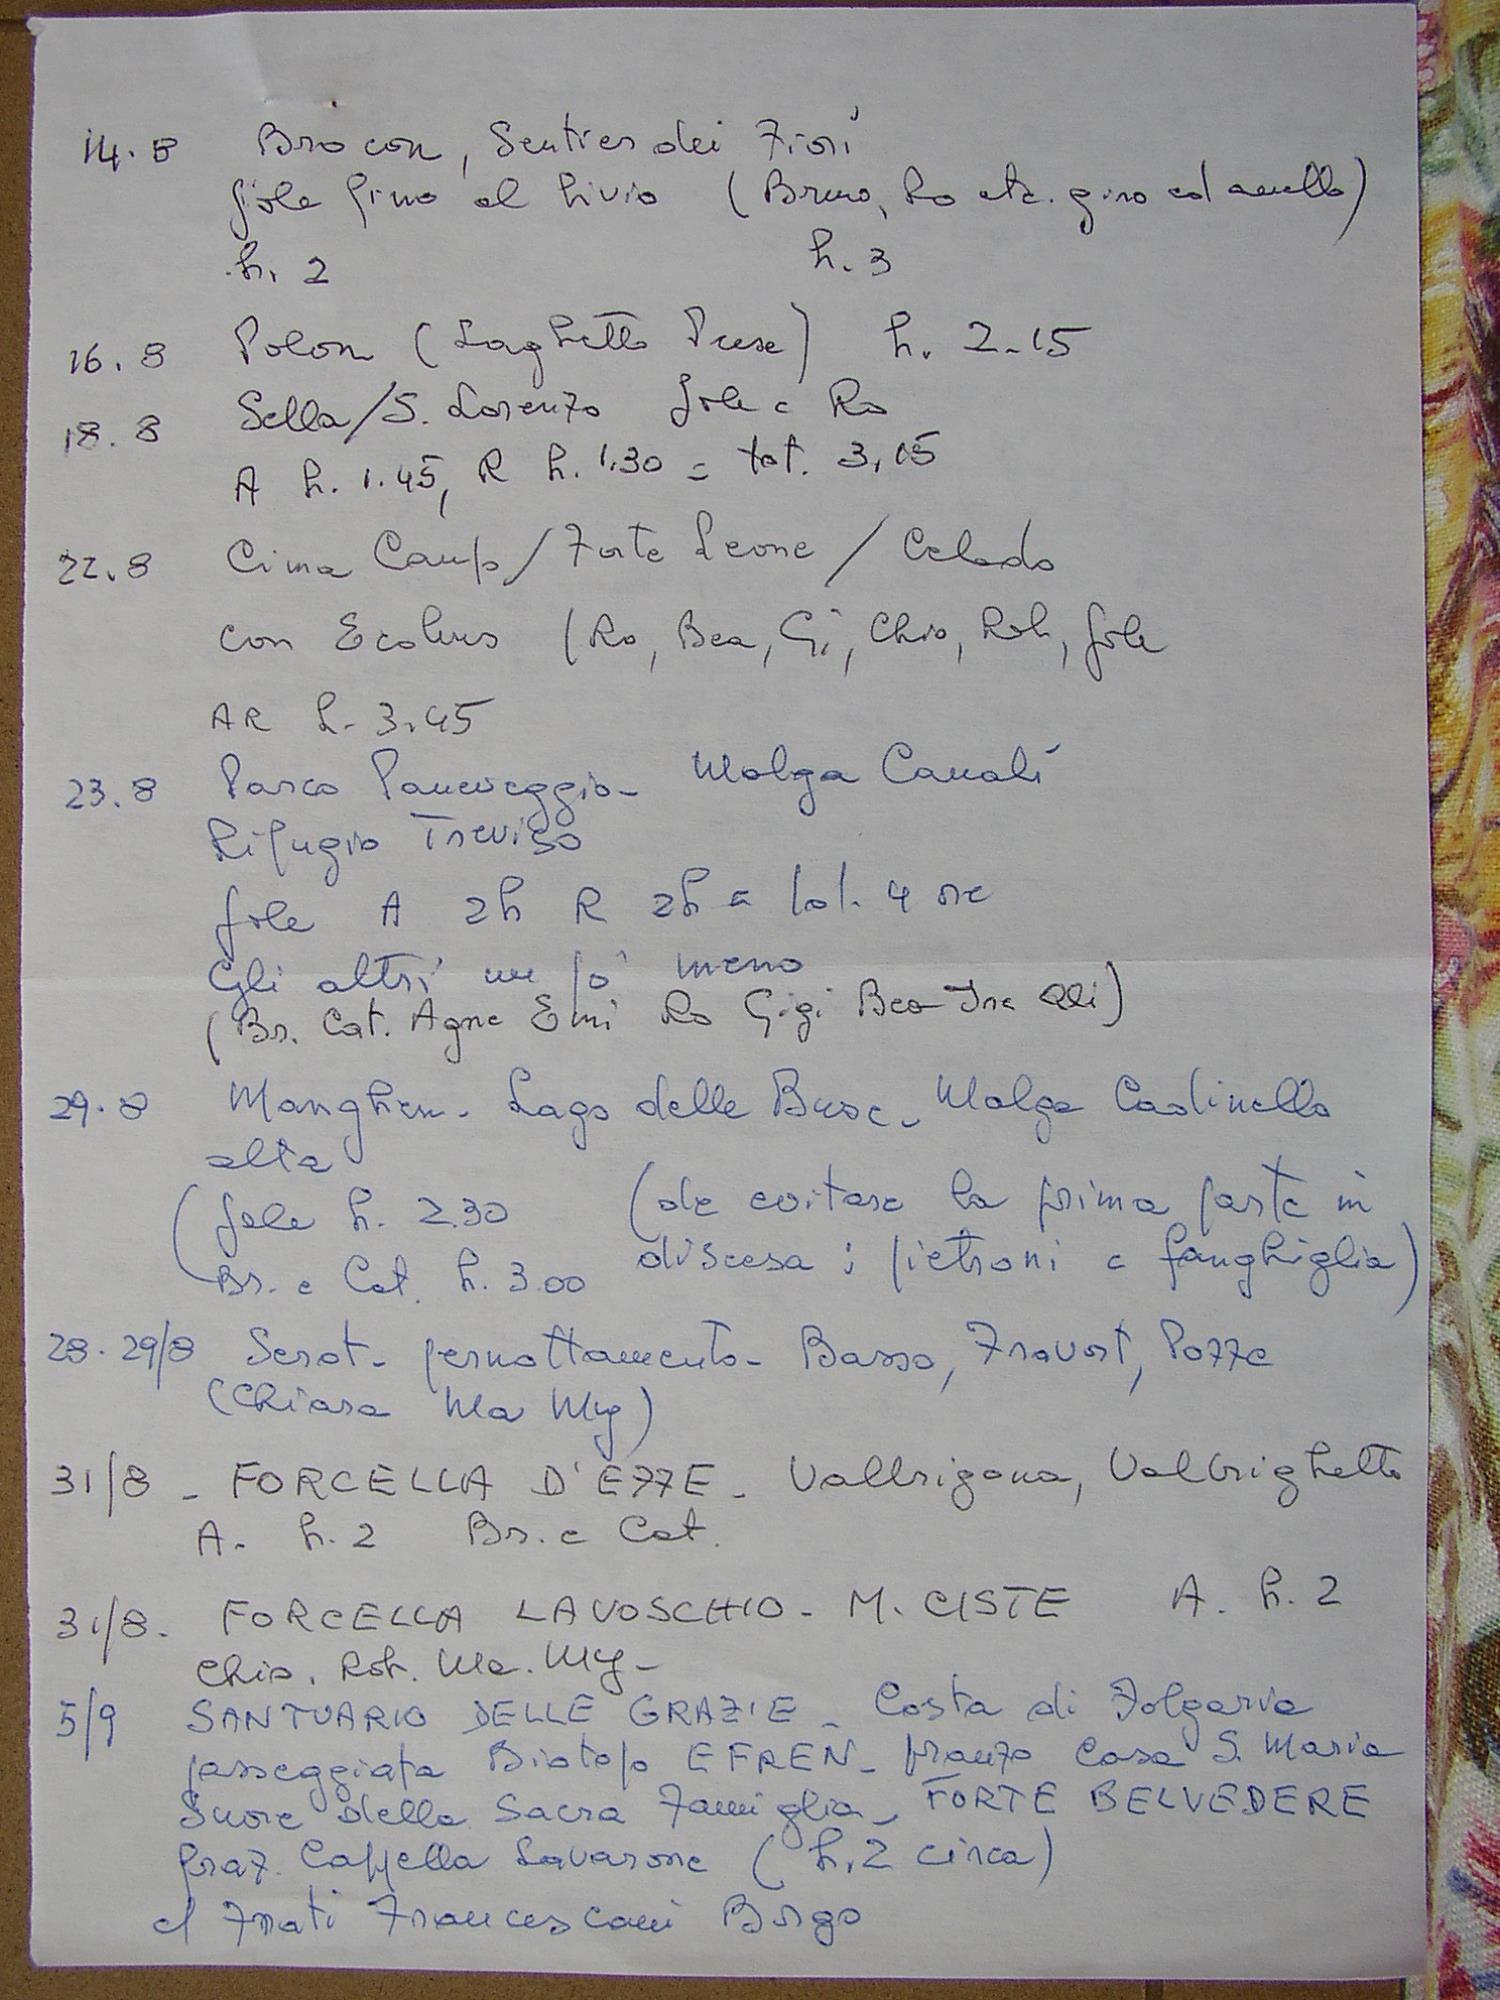 14.8 Brocon, Sentier dei Fiori
Jole fino al bivio (Bruno, Ro etc. giro ad anello)
h. 2 h. 3
16.8 Polon (Laghetto Prese) h. 2.15
18.8 Sella/S. Lorenzo Jole e Ro
A h. 1.45, R h. 1.30 = tot. 3,15
22.8 Cima Campo/Forte Leone/Celado
con Ecobus (Ro, Bea, Gi, Chia, Rob, Jole
AR h. 3.45
23.8 Parco Paneveggio - Malga Canali
Rifugio Treviso
Jole A 2h R 2h = tot. 4 ore
Gli altri un po' meno
(Br. Cat. Agne Emi Ro Gigi Bea Ire Alli)
29.8 Manghen - Lago delle Buse - Malga Cadinello
alta
(Jole h. 2.30 (da evitare la prima parte in
Br. e Cat. h. 3.00 discesa : pietroni e fanghiglia)
28.29/8 Serot - pernottamento - Basso, Fravort, Pozze
(Chiara Ma My)
31/8 - FORCELLA D'EZZE - Valbrigona, Valbrighetto
A. h. 2 Br. e Cat.
31/8. FORCELLA LAVOSCHIO - M. CISTE A. h. 2
Chia. Rob. Ma. My -
5/9 SANTUARIO DELLE GRAZIE - Costa di Folgaria
passeggiata Biotopo EFREN - pranzo Casa S. Maria
Suore della Sacra Famiglia - FORTE BELVEDERE
fraz. Cappella Lavarone (h. 2 circa)
c/ Frati Francescani Borgo